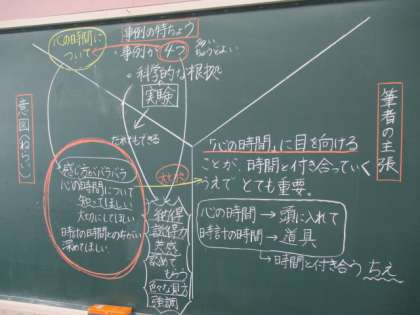 心の時間に
ついて
事例の特ちょう
・事例が4つ
多い
ちょうどよい
・科学的な根拠
実験
だれでもできる
意図(ねらい)
感じ方がバラバラ
心の時間について
知ってほしい
大切にしてほしい
時計の時間とのちがい
深めてほしい
納得
説得力
共感
認めて
もらう
色々な見方
強調
筆者の主張
「心の時間」に目を向ける
ことが、時間と付き合っていく
うえでとても重要。
心の時間→頭に入れて
時計の時間→道具
→時間と付き合うちえ